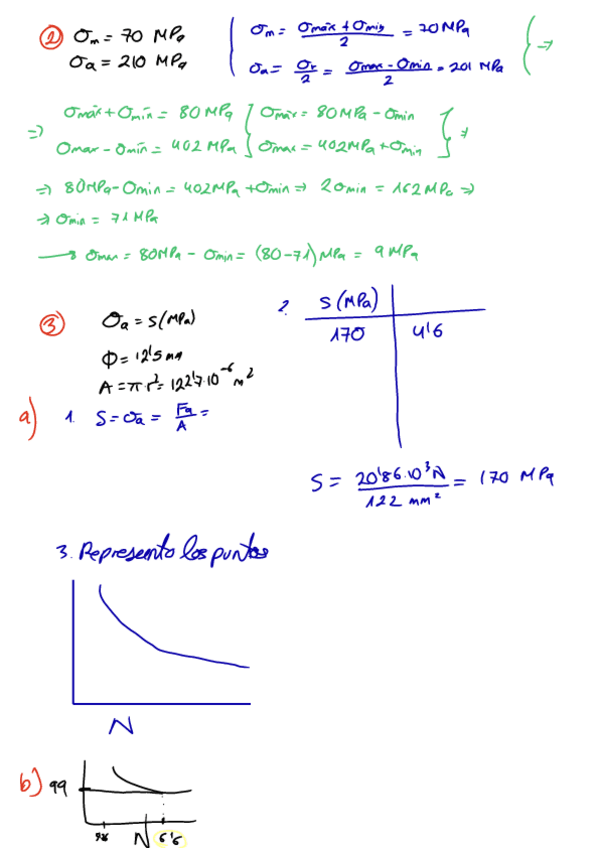 ② σm = 70 MPa
σa = 210 MPa
σm = (σmáx + σmin)/2 = 70 MPa
σa = σr/2 = (σmax - σmin)/2 = 201 MPa } →
⇒ σmáx + σmín = 80 MPa { σmáx = 80 MPa - σmin
σmax - σmin = 402 MPa { σmax = 402 MPa + σmin } ⇒
⇒ 80 MPa - σmin = 402 MPa + σmin ⇒ 2σmin = 162 MPa ⇒
⇒ σmin = 71 MPa
→ σmax = 80 MPa - σmin = (80-71) MPa = 9 MPa
③ σa = S (MPa)
Φ = 12'5 mm
A = π·r² = 122'7·10⁻⁶ m²
a) 1. S = σa = Fa/A =
2. S (MPa)
170 | 4'6
S = 20'86·10³ N / 122 mm² = 170 MPa
3. Represento los puntos
N
b) 99
N 6'6